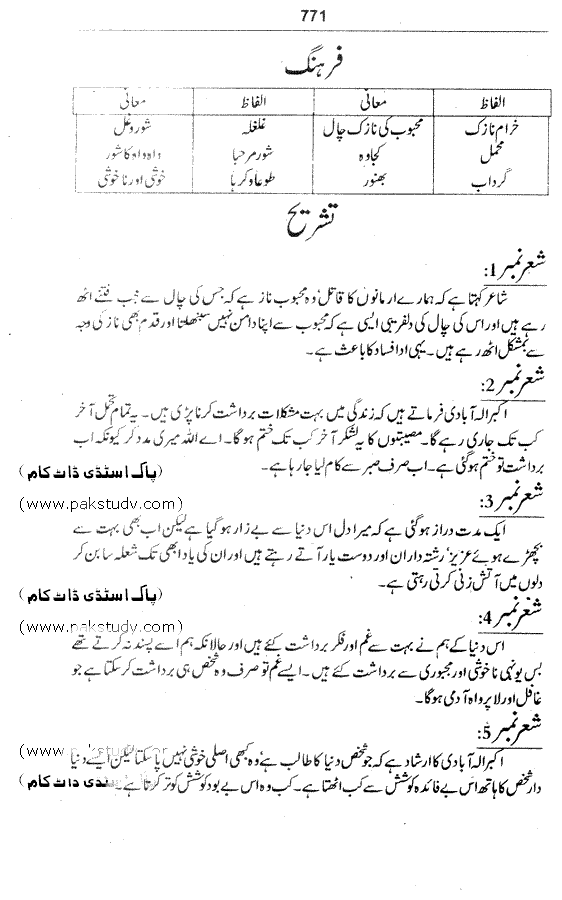 771
فرہنگ
الفاظ معانی الفاظ معانی
خرام نازک محبوب کی نازک چال غلغلہ شور و غل
محمل کجاوہ شور مرحبا واہ واہ کا شور
گرداب بھنور طوعاً و کرہا خوشی اور ناخوشی
تشریح
شعر نمبر 1:
شاعر کہتا ہے کہ ہمارے ارمانوں کا قاتل وہ محبوب ناز ہے کہ جس کی چال سے فتنے اٹھ
رہے ہیں اور اس کی چال کی دلفریبی ایسی ہے کہ محبوب سے اپنا دامن نہیں سنبھلتا اور قدم بھی ناز کی وجہ
سے بمشکل اٹھ رہے ہیں۔ یہی ادا فساد کا باعث ہے۔
شعر نمبر 2:
اکبر الہ آبادی فرماتے ہیں کہ زندگی میں بہت مشکلات برداشت کرنا پڑی ہیں۔ یہ تمام تحمل آخر
کب تک جاری رہے گا۔ مصیبتوں کا یہ لشکر آخر کب تک ختم ہو گا۔ اے اللہ میری مدد کر کیونکہ اب
برداشت تو ختم ہو گئی ہے۔ اب صرف صبر سے کام لیا جا رہا ہے۔ (پاک اسٹڈی ڈاٹ کام)
شعر نمبر 3: (www.pakstudy.com)
ایک مدت دراز ہو گئی ہے کہ میرا دل اس دنیا سے بے زار ہو گیا ہے لیکن اب بھی بہت سے
بچھڑے ہوئے عزیز، رشتہ داران اور دوست یار آتے رہتے ہیں اور ان کی یاد ابھی تک شعلہ سا بن کر
دلوں میں آتش زنی کرتی رہتی ہے۔ (پاک اسٹڈی ڈاٹ کام)
شعر نمبر 4: (www.pakstudy.com)
اس دنیا کے ہم نے بہت سے غم اور فکر برداشت کئے ہیں اور حالانکہ ہم اسے پسند نہ کرتے تھے
بس یونہی ناخوشی اور مجبوری سے برداشت کئے ہیں۔ ایسے غم تو صرف وہ شخص ہی برداشت کر سکتا ہے جو
غافل اور لا پرواہ آدمی ہو گا۔
شعر نمبر 5: (www.pakstudy
اکبر الہ آبادی کا ارشاد ہے کہ جو شخص دنیا کا طالب ہے، وہ کبھی اصلی خوشی نہیں پا سکتا لیکن ایسے دنیا
دار شخص کا ہاتھ اس بے فائدہ کوشش سے کب اٹھتا ہے۔ کب وہ اس بے سود کوشش کو ترک کرتا ہے۔ اسٹڈی ڈاٹ کام)